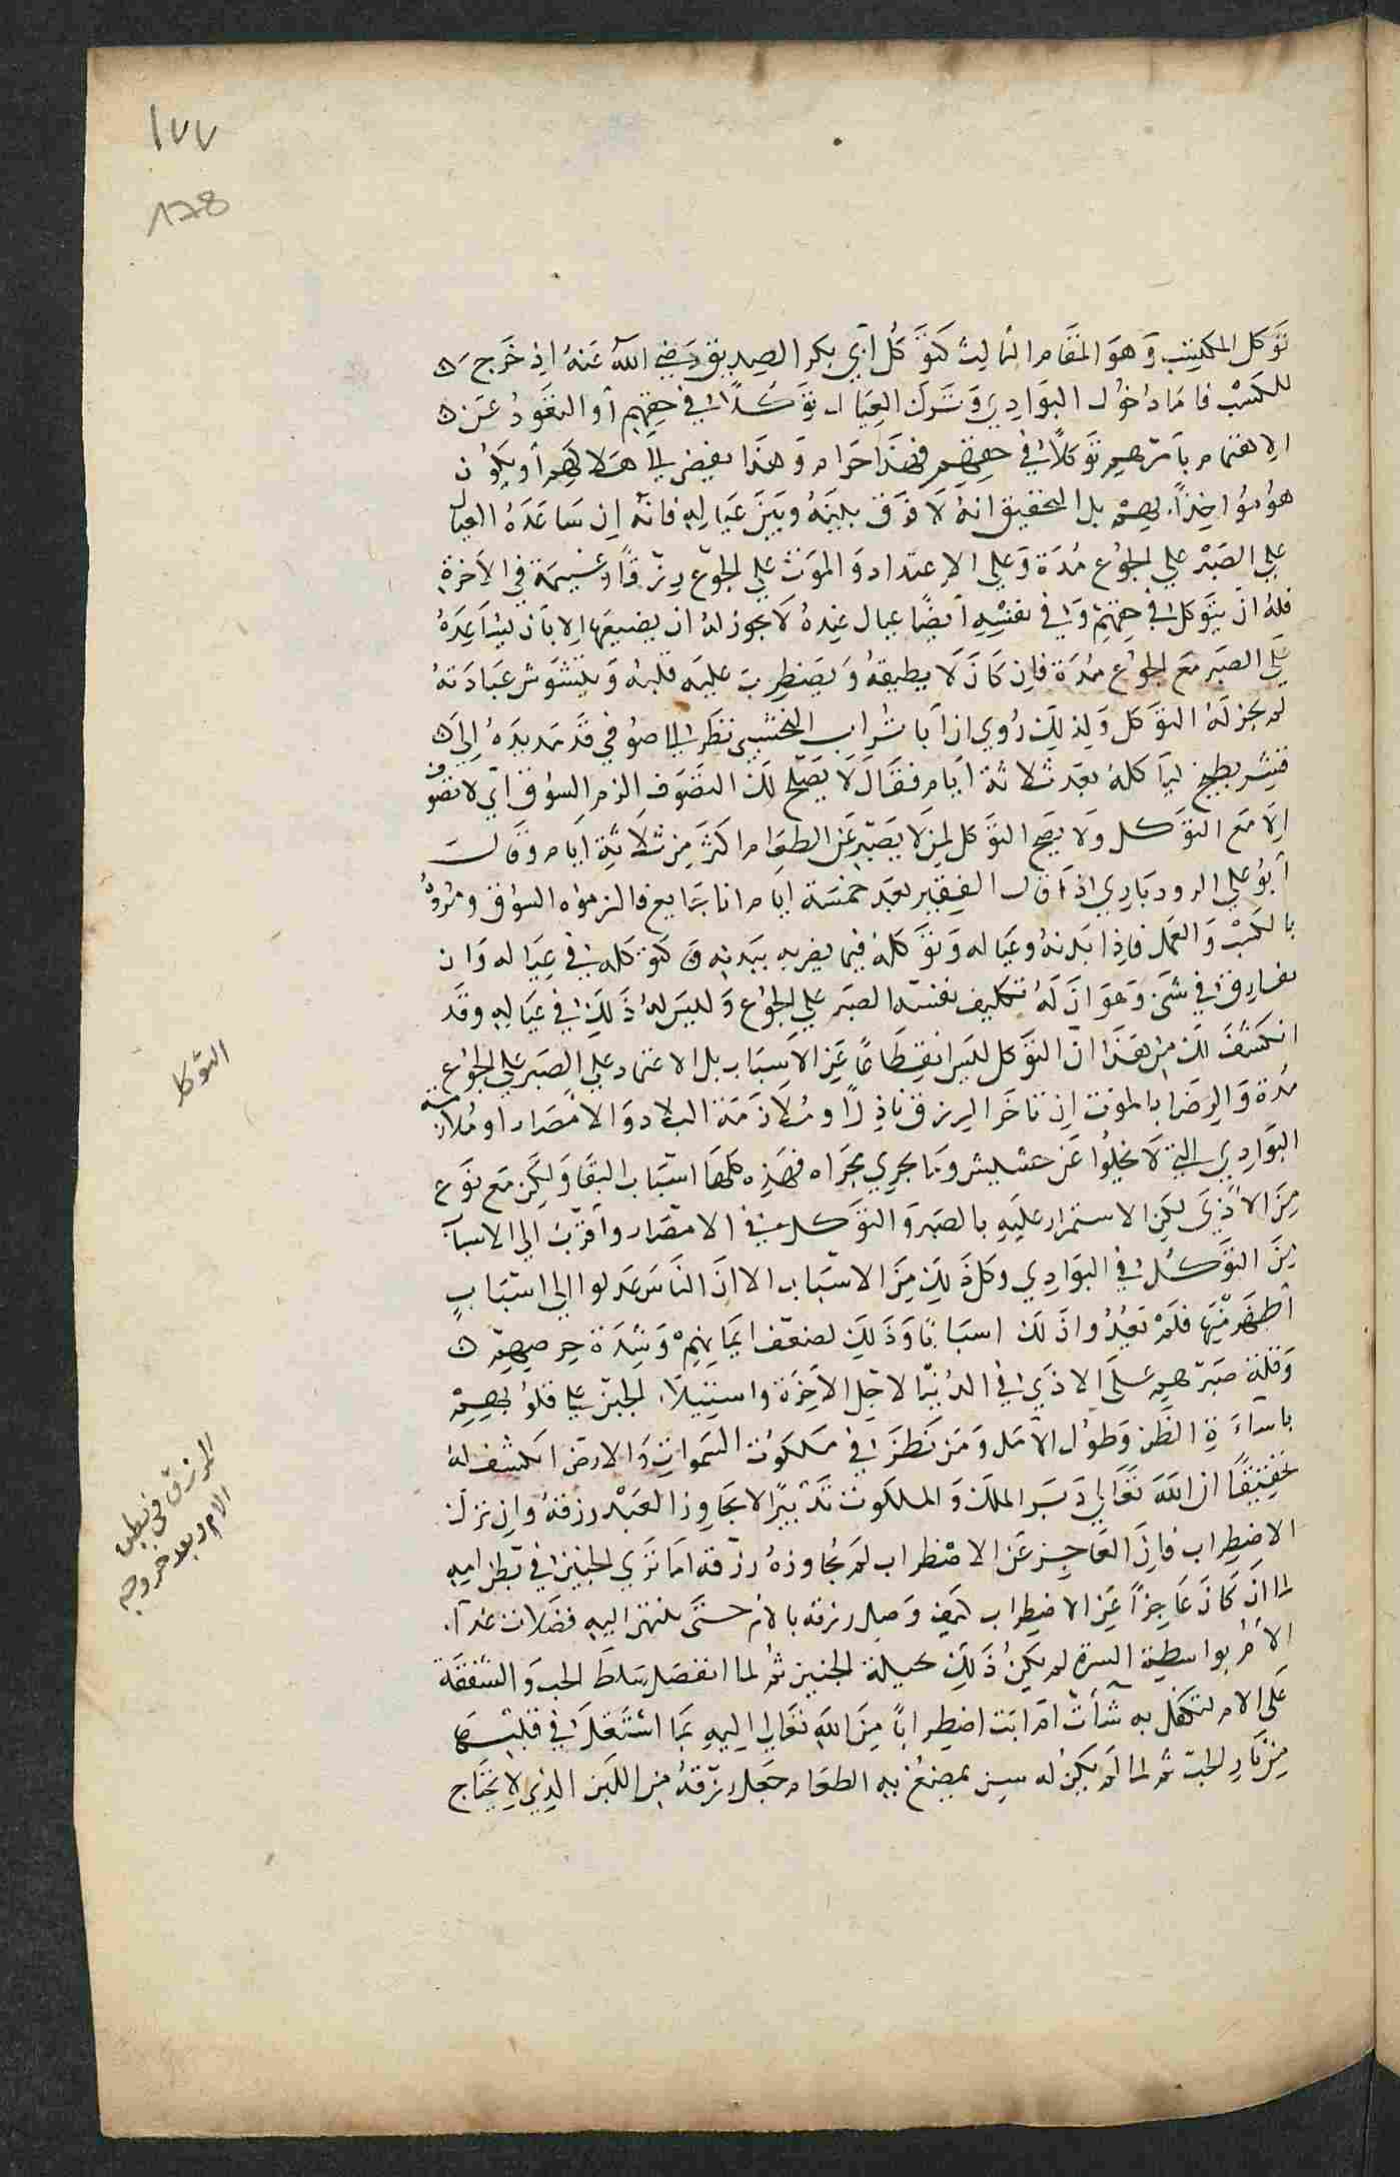 ١٧٧
178
توكل المكتسب وهو المقام الثالث كتوكل أبي بكر الصديق رضي الله عنه إذ خرج
للكسب فاما دخول البوادي وترك العيال توكلا في حقهم أو القعود عن
الاهتمام بأمرهم توكلا في حقهم فهذا حرام وهذا يفضي إلي هلاكهم أو يكون
هو مؤاخذا بهم بل التحقيق انه لا فرق بينه وبين عياله فانه إن ساعده العيال
علي الصبر علي الجوع مدة وعلي الاعتداد والموت علي الجوع رزقا وغنيمة في الآخرة
فله ان يتوكل في حقهم وفي نفسه أيضا عيال عنده لا يجوز له ان يضيعها إلا بأن يساعده
علي الصبر مع الجوع مدة فإن كان لا يطيقه ويضطرب عليه قلبه ويتشوش عبادته
لم يجز له التوكل ولذلك روي ان أبا تراب النخشبي نظر إلي صوفي قد مد يده إلى
قشر بطيخ ليأكله بعد ثلاثة أيام فقال لا يصلح لك التصوف الزم السوق أي لا تصوف
إلا مع التوكل ولا يصح التوكل لمن لا يصبر عن الطعام اكثر من ثلاثة ايام وقال
أبو علي الرودباري اذا قال الفقير بعد خمسة ايام انا جايع فالزموه السوق ومروه
بالكسب والعمل فاذا بدنه وعياله وتوكله فيما يضر به ببدنه كتوكله في عياله وان
يفارق في شي وهو ان له تكليف نفسه الصبر علي الجوع وليس له ذلك في عياله وقد
انكشف لك من هذا ان التوكل ليس انقطاعا عن الاسباب بل الاعتماد علي الصبر علي الجوع
مدة والرضا بالموت إن تاخر الرزق نادرا وملازمة البلاد والامصار او ملازمة
البوادي التي لا يخلوا عن حشيش وما يجري مجراه فهذه كلها اسباب البقا ولكن مع نوع
من الاذى لكن الاستمرار عليه بالصبر والتوكل في الامصار وأقرب الي الاسباب
من التوكل في البوادي وكل ذلك من الاسباب الا ان الناس عدلوا الي اسباب
أظهر منها فلم تعدوا ذلك اسبابا وذلك لضعف ايمانهم وشدة حرصهم
وقلة صبرهم على الاذي في الدنيا لاجل الآخرة واستيلاء الجبن علي قلوبهم
باساءة الظن وطول الأمل ومن نظر في ملكوت السموات والارض انكشف له
تحقيقا ان الله تعالي دبر الملك والملكوت تدبيرا لا يجاوز العبد رزقه وإن ترك
الاضطراب فإن العاجز عن الاضطراب لم يجاوزه رزقه اما تري الجنين في بطن امه
لما ان كان عاجزا عن الاضطراب كيف وصل رزقه بالام حتى ينتهي اليه فضلات غداء
الأم بواسطة السرة لم يكن ذلك بحيلة الجنين ثم لما انفصل سلط الحب والشفقة
على الام لتتكفل به شأت أم ابت اضطرابا من الله تعالي إليه بما اشتعل في قلبها
من نار الحب ثم لما لم يكن له سن يمضغ به الطعام جعل رزقه من اللبن الذي لا يحتاج
التوكل
الرزق في بطن
الام وبعد خروجه